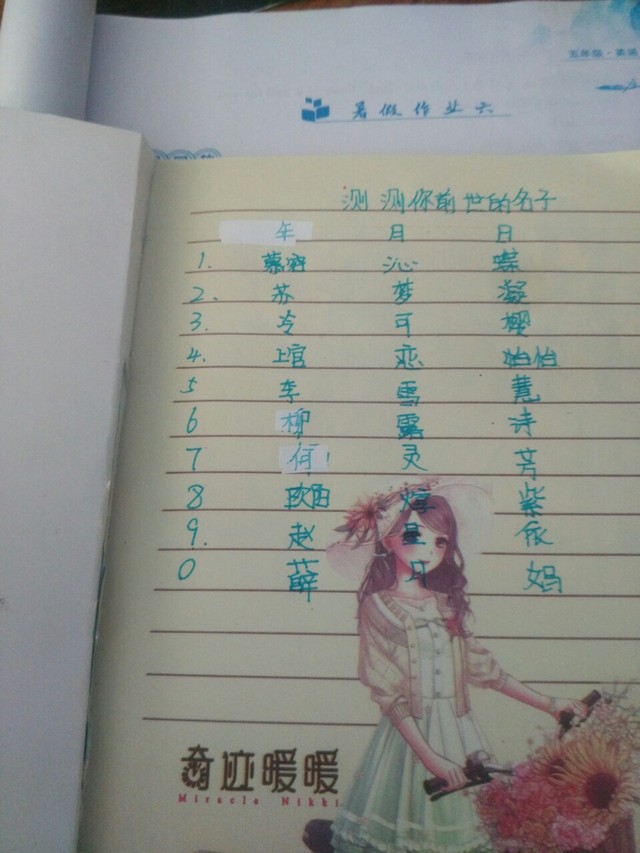 五年级·英语
暑假作业六
测测你前世的名子
年 月 日
1. 慕容 沁 蝶
2. 苏 梦 凝
3. 冷 可 樱
4. 上官 恋 怡怡
5 李 雪 慧
6 柳 露 诗
7 何 灵 芳
8 欧阳 紫
9. 赵 星 依
0 薛 月 嫣
奇迹暖暖
Miracle Nikki